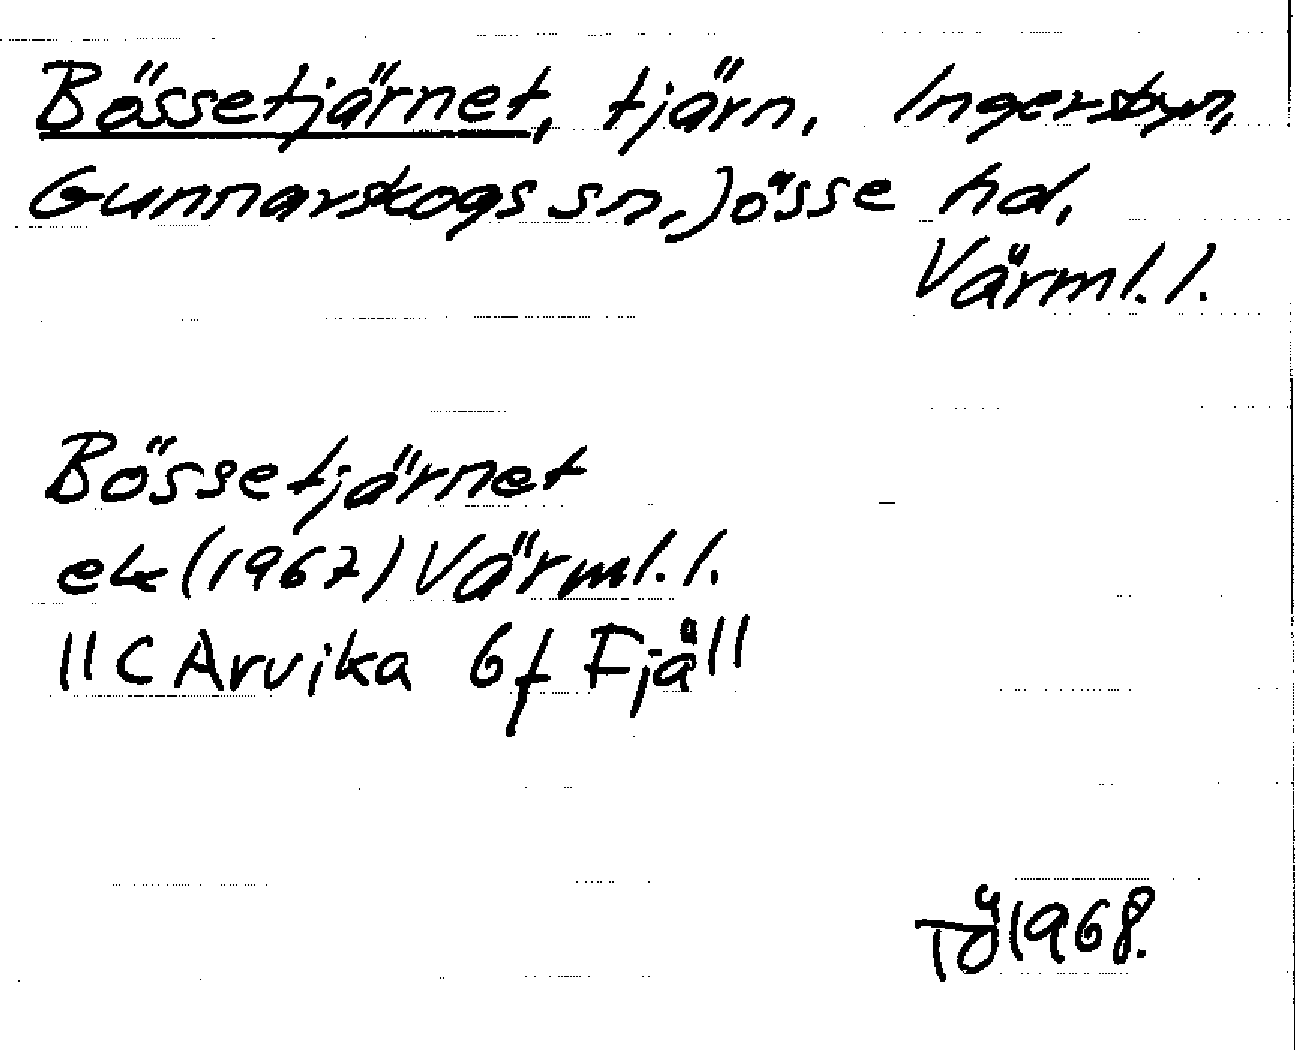 Bössetjärnet, tjärn, Ingersbyn,
Gunnarskogs sn, Jösse hd,
Värml. l.
Bössetjärnet
ek (1967) Värml. l.
11C Arvika 6f Fjäll
TÖ 1968.